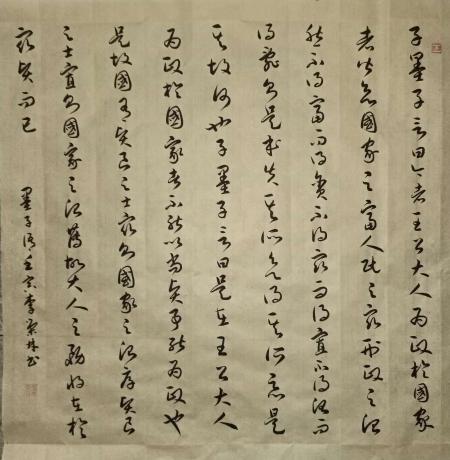 子墨子言曰今者王公大人为政於國家
者皆欲國家之富人民之眾刑政之治
然不得富而得貧不得眾而得寡不得治而
得亂則是本失其所欲得其所惡是
其故何也子墨子言曰是在王公大人
为政於國家者不能以尚賢事能为政也
是故國有賢良之士眾則國家之治厚賢良
之士寡則國家之治薄故大人之務将在於
眾賢而已
墨子语壬寅李林书